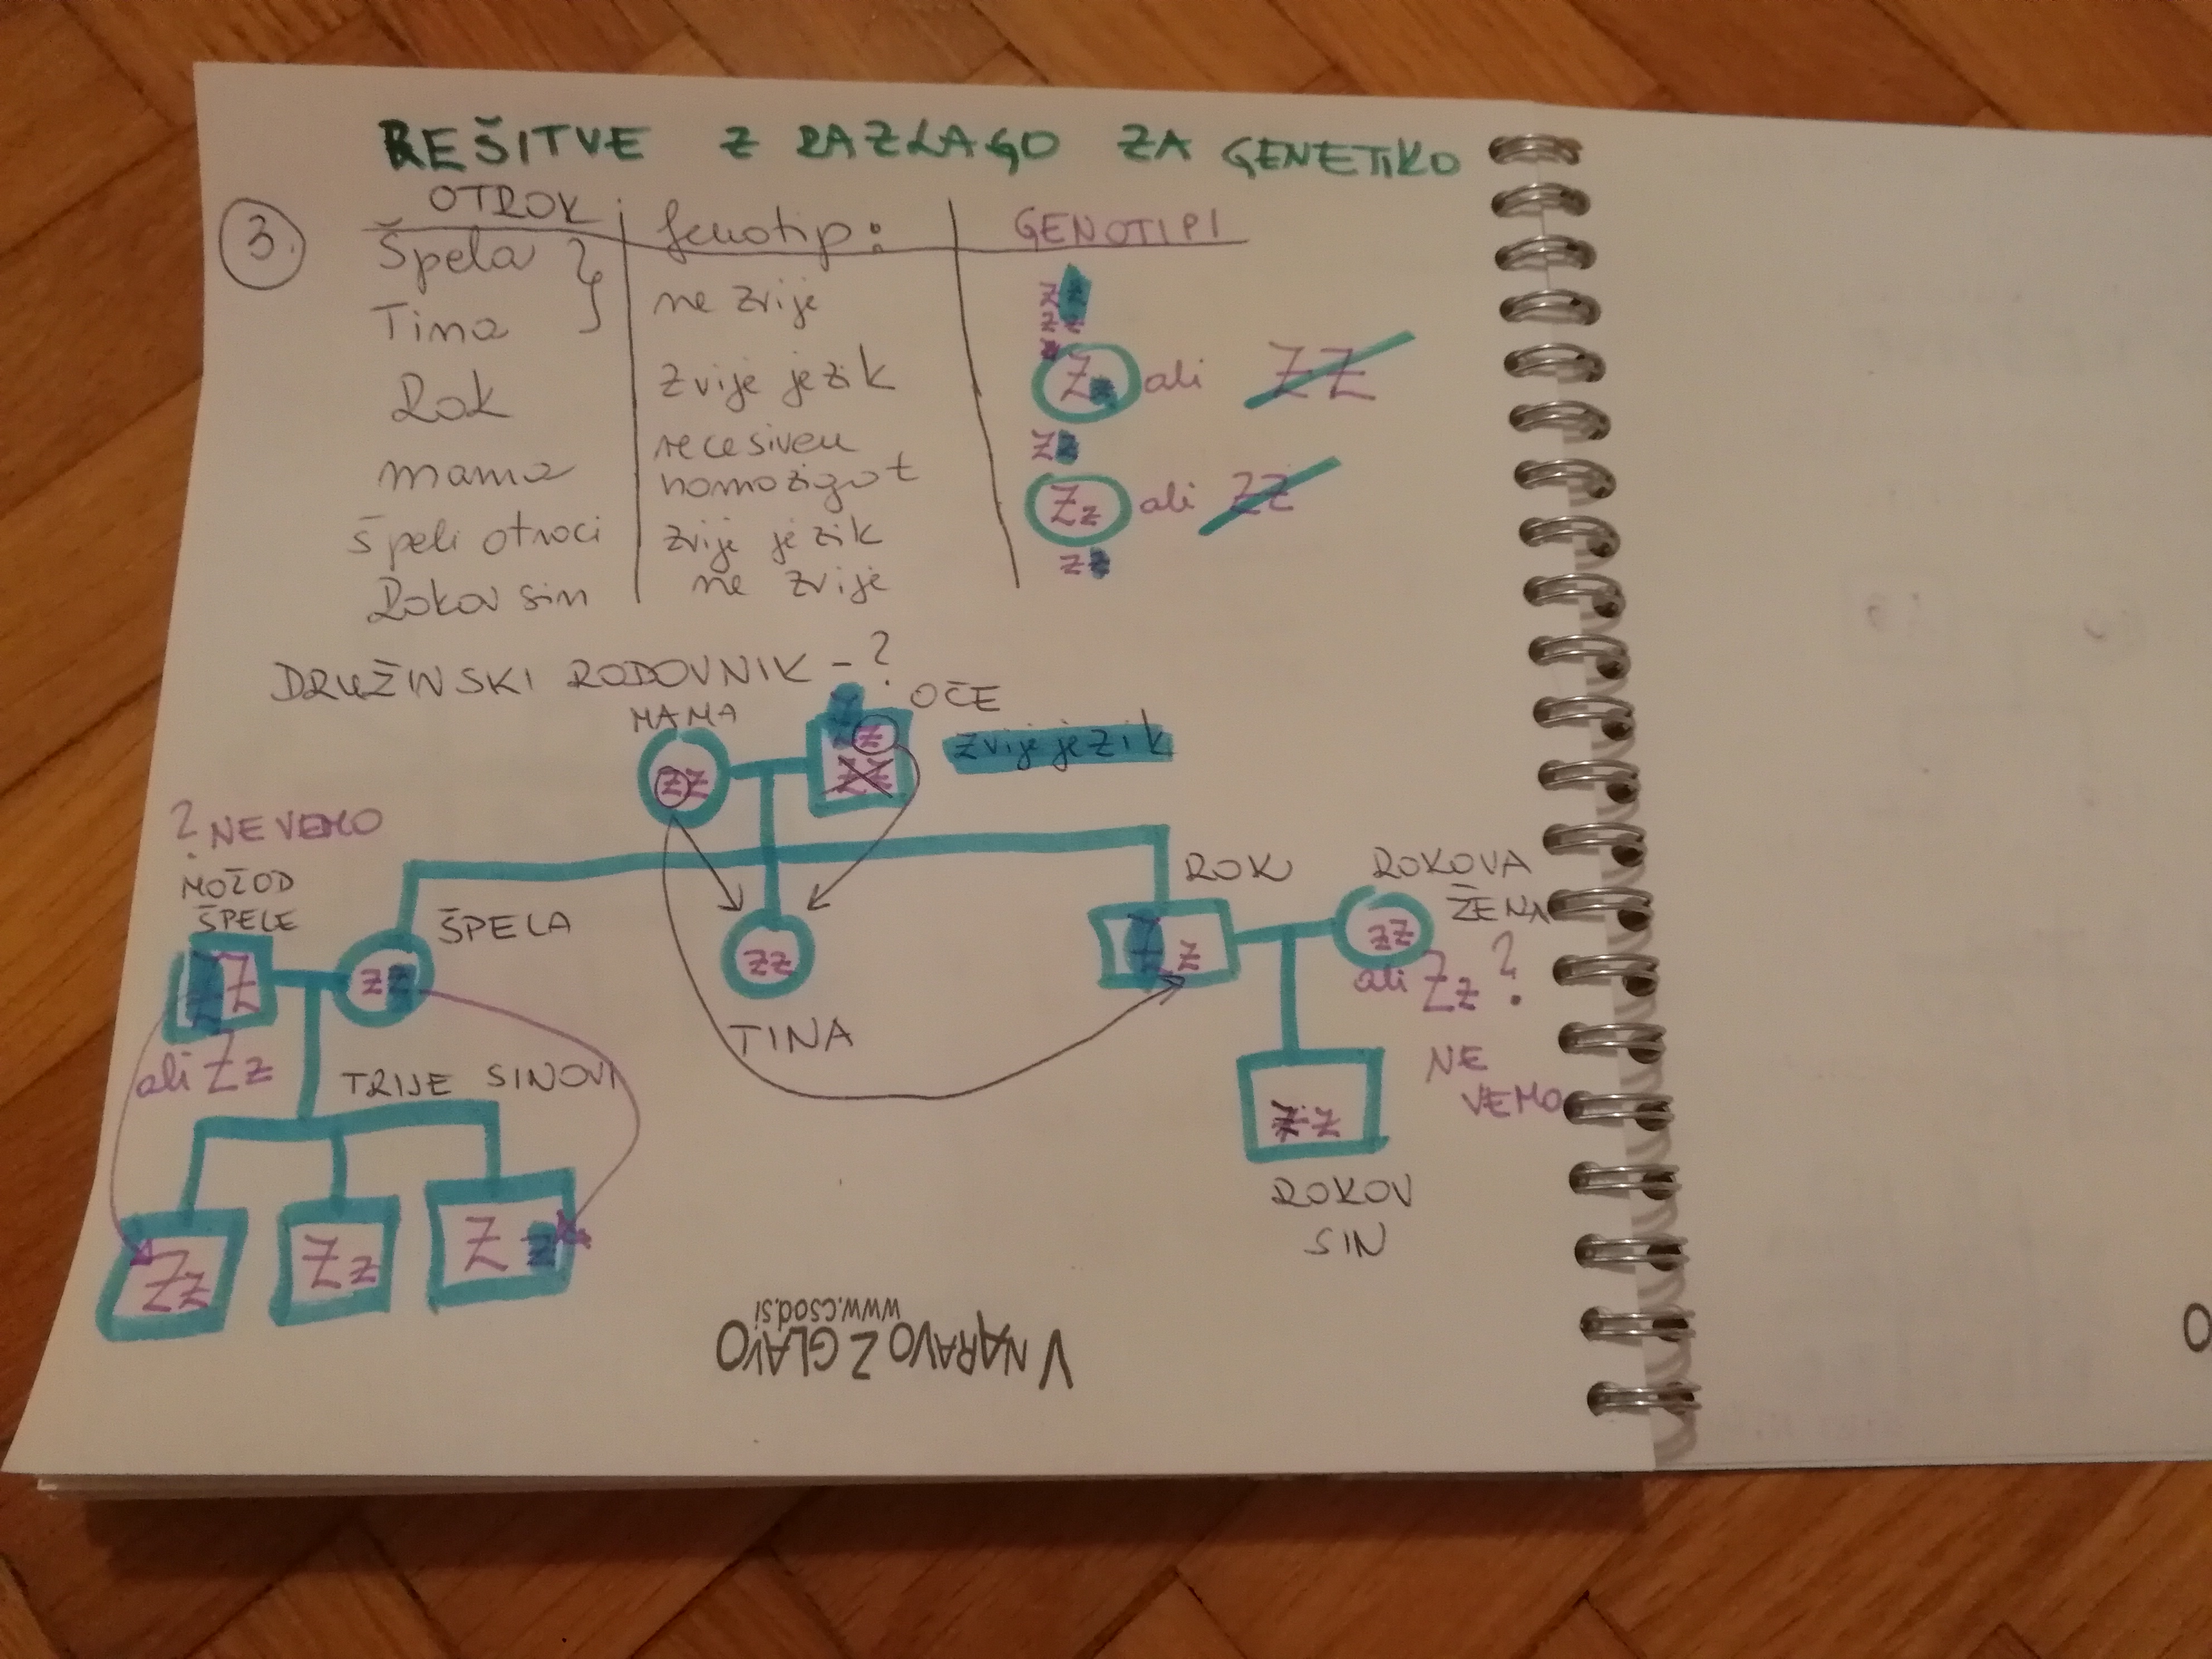 REŠITVE Z RAZLAGO ZA GENETIKO
3.
OTROK fenotip: GENOTIPI
Špela
Tina ne zvije zz
zz
Rok zvije jezik Zz ali ZZ
mama recesiven homozigot zz
Špeli otroci zvije jezik Zz ali ZZ
Rokov sin ne zvije zz
DRUŽINSKI RODOVNIK - ?
MAMA OČE
zz Zz zvije jezik
ZZ
? NE VEMO
MOŽ OD
ŠPELE
ŠPELA
ROK
ROKOVA
ŽENA
ZZ zz zz Zz zz
ali Zz
ali Zz ?
TINA
NE
VEMO
TRIJE SINOVI
zz
ROKOV
SIN
Zz Zz Zz
V NARAVO Z GLAVO
www.csod.si